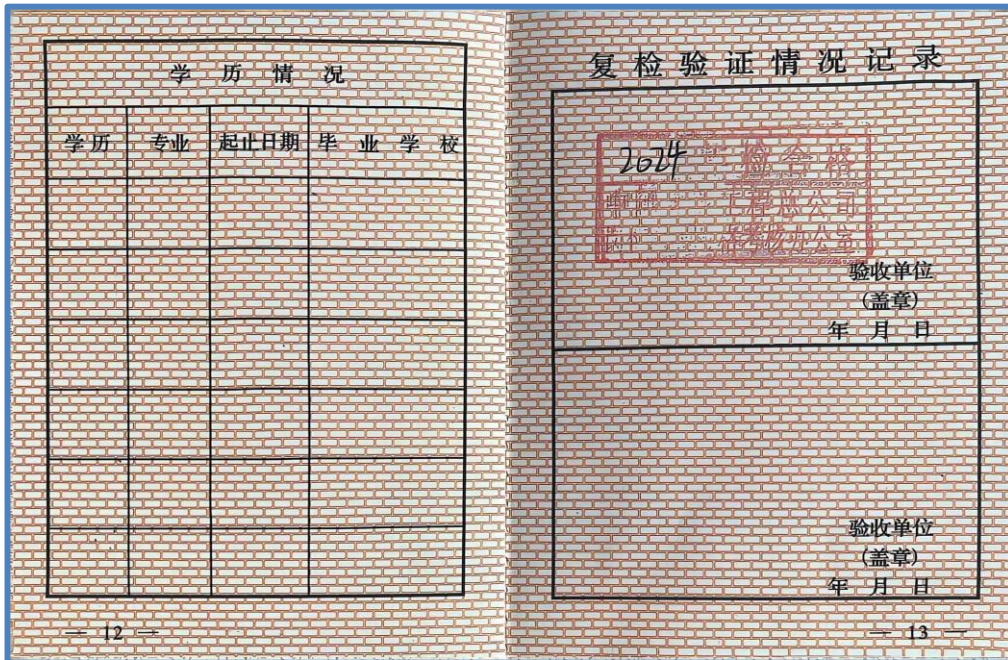 学历情况
学历 专业 起止日期 毕业学校
— 12 —
复检验证情况记录
2024 年检合格
工程总公司
考核办公室
验收单位
(盖章)
年 月 日
验收单位
(盖章)
年 月 日
— 13 —